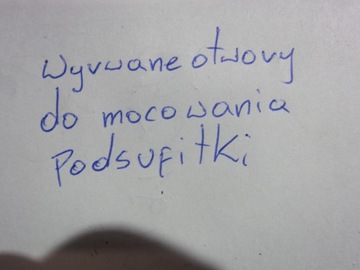 Wyrwane otwory
do mocowania
Podsufitki